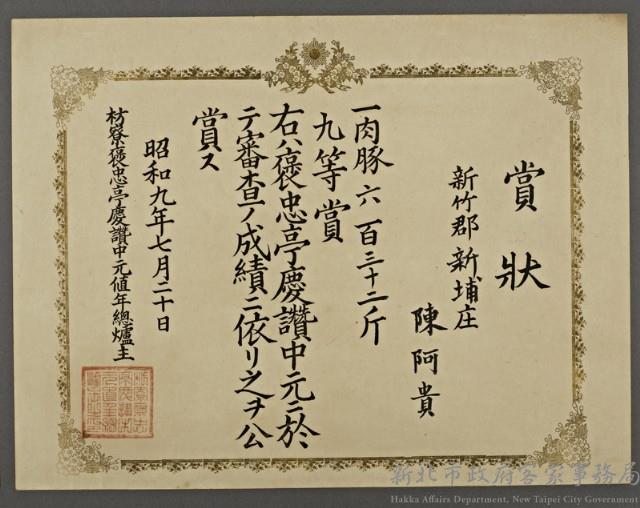 賞狀
新竹郡新埔庄
陳阿貴
一肉豚六百三十二斤
九等賞
右ハ褒忠亭慶讚中元ニ於
テ審查ノ成績ニ依リ之ヲ公
賞ス
昭和九年七月二十日
枋寮褒忠亭慶讚中元值年總爐主
新北市政府客家事務局
Hakka Affairs Department, New Taipei City Government